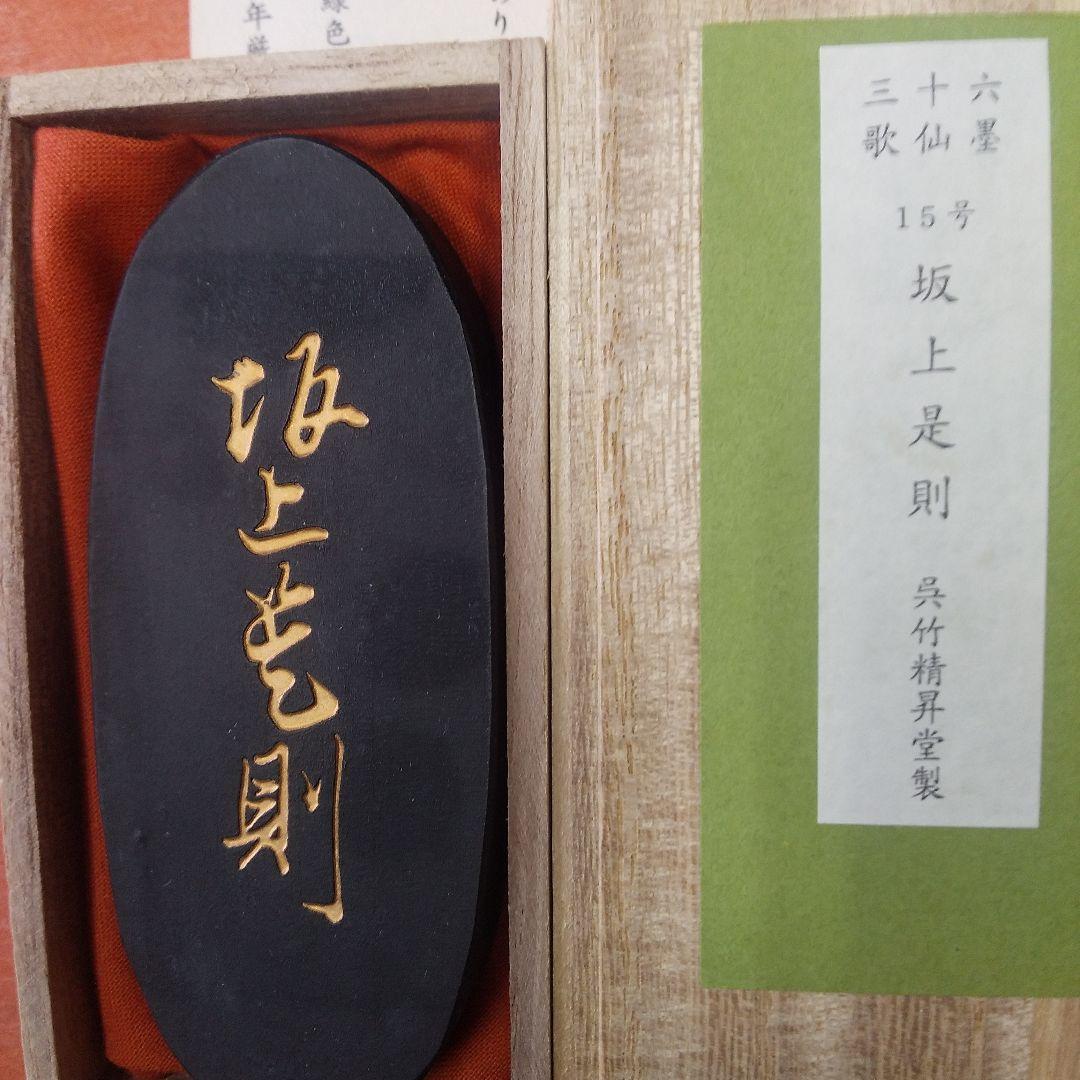 坂上是則
三十六
歌仙墨
15号
坂上是則
呉竹精昇堂製
り
緑色
年